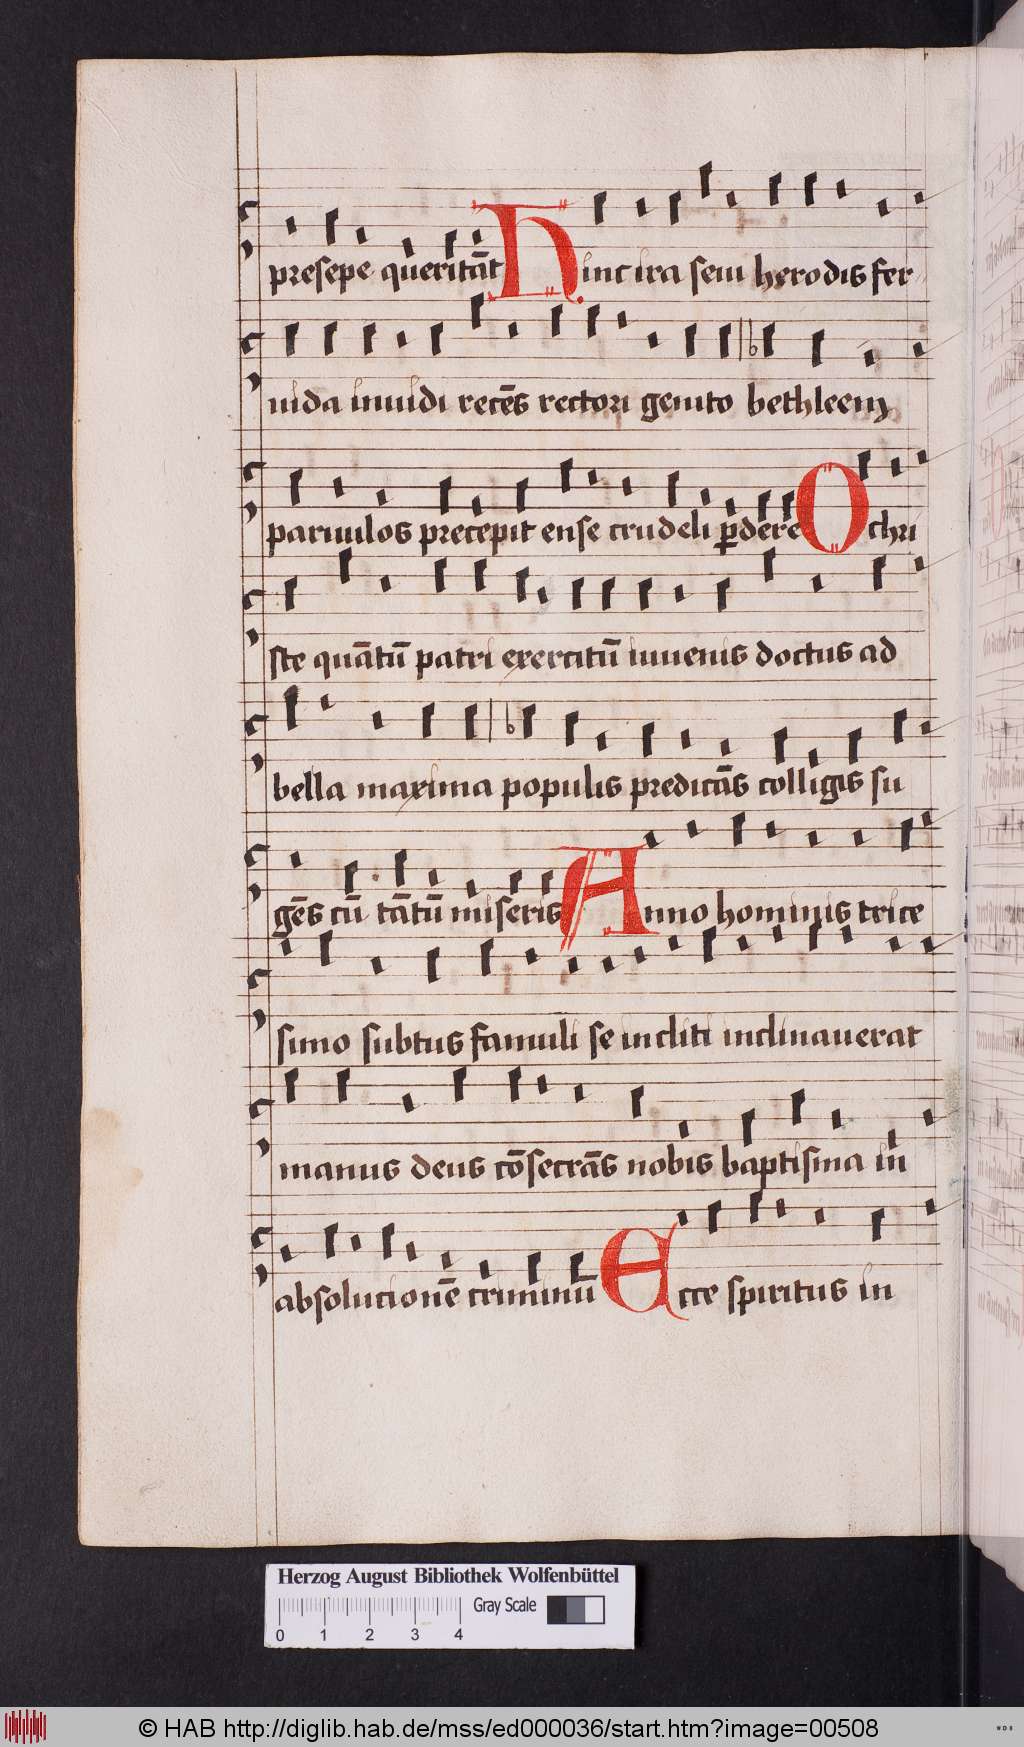 presepe queritāt Hinc ira seui herodis fer
uida inuidi recēs rectori genito bethleem
paruulos precepit ense crudeli ꝑdere O chri
ste quātū patri exercitū iuuenis doctus ad
bella maxima populis predicās colligis su
gēs cū tātū miseris Anno hominis trice
simo subtus famuli se incliti inclinauerat
manus deus cōsecrās nobis baptisma in
absolucionē criminū Ecce spiritus in
Herzog August Bibliothek Wolfenbüttel
Gray Scale
0 1 2 3 4
© HAB http://diglib.hab.de/mss/ed000036/start.htm?image=00508